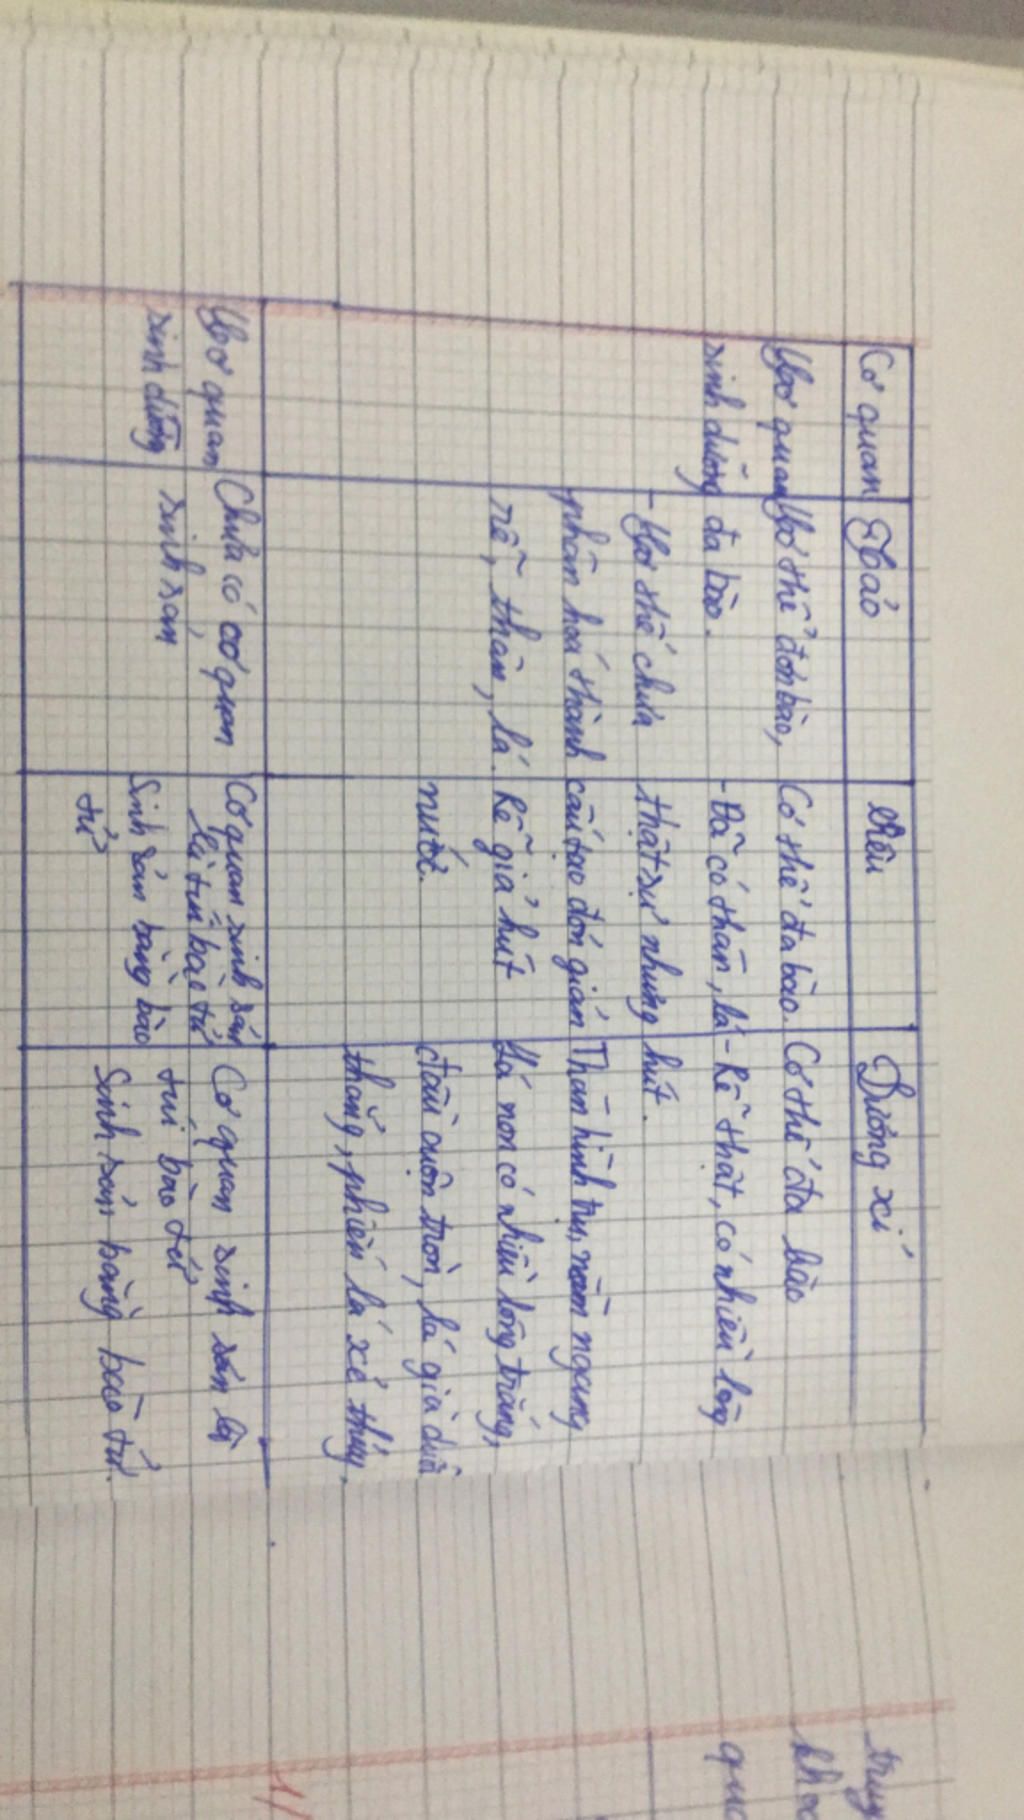 Cơ quan
Tảo
Rêu
Dương xỉ
Cơ quan
sinh dưỡng
Cơ thể đơn bào,
đa bào.
- Cơ thể chưa
phân hoá thành
rễ, thân, lá.
Cơ thể đa bào.
- Đã có thân, lá
thật sự nhưng
cấu tạo đơn giản
Rễ giả hút
nước.
Cơ thể đa bào
- Rễ thật, có nhiều lông
hút.
Thân hình trụ, nằm ngang
Lá non có nhiều lông trắng,
đầu cuộn tròn, lá già duỗi
thẳng, phiến lá xẻ thùy.
Cơ quan
sinh dưỡng
Chưa có cơ quan
sinh sản
Cơ quan sinh sản
là túi bào tử
Sinh sản bằng bào
tử
Cơ quan sinh sản là
túi bào tử
Sinh sản bằng bào tử.
1/